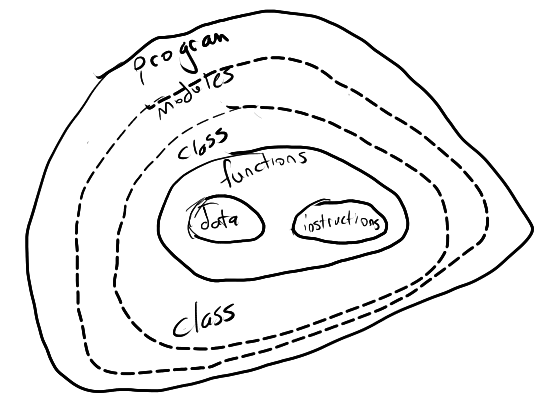 program
modules
class
functions
data
instructions
class